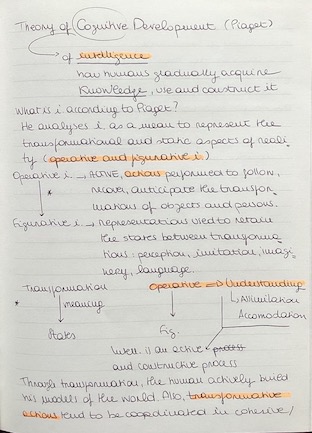 Theory of Cognitive Development (Piaget)
of intelligence
how humans gradually acquire
Knowledge, use and construct it
What is i. according to Piaget?
He analyses i. as a mean to represent the
transformational and static aspects of reali-
ty (operative and figurative i.)
Operative i. → ACTIVE, actions performed to follow,
recover, anticipate the transfor-
mations of objects and persons.
Figurative i. → Representations used to retain
the states between transforma-
tions: perception, imitation, imagi-
nery, language.
Transformation operative → Understanding
* meaning Assimilation
Accomodation
States Fig.
Intell. is an active process
and constructive process
Through transformation, the human actively build
his models of the world. Also, transformative
actions tend to be coordinated in cohesive/